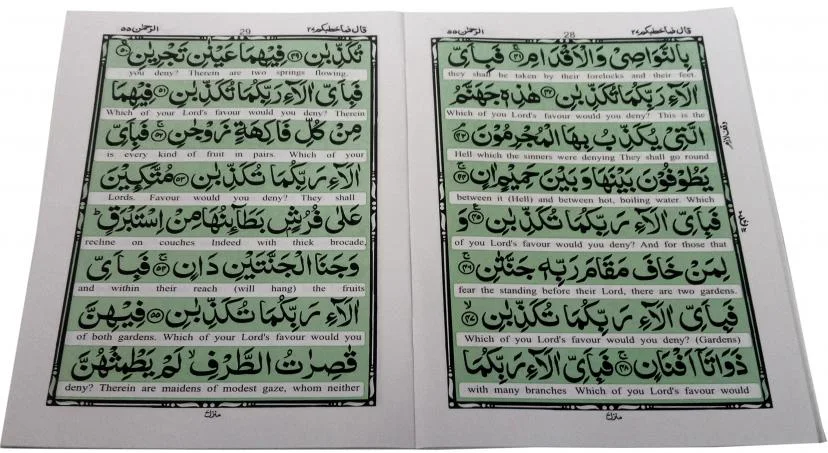 قال فما خطبكم ۲۷ 28 الرحمٰن ۵۵
بِالنَّوَاصِیْ وَالْاَقْدَامِ ﴿۴۱﴾ فَبِاَیِّ
they shall he taken by their forelocks and their feet.
اٰلَآءِ رَبِّکُمَا تُکَذِّبٰنِ ﴿۴۲﴾ هٰذِهٖ جَهَنَّمُ
Which of your Lord's favour would you deny? This is the
الَّتِیْ یُکَذِّبُ بِهَا الْمُجْرِمُوْنَ ﴿۴۳﴾
Hell which the sinners were denying They shall go round
یَطُوْفُوْنَ بَیْنَهَا وَبَیْنَ حَمِیْمٍ اٰنٍ ﴿۴۴﴾
between it (Hell) and between hot, boiling water. Which
فَبِاَیِّ اٰلَآءِ رَبِّکُمَا تُکَذِّبٰنِ ﴿۴۵﴾ وَ
of you Lord's favour would you deny? And for those that
لِمَنْ خَافَ مَقَامَ رَبِّهٖ جَنَّتٰنِ ﴿۴۶﴾
fear the standing before their Lord, there are two gardens.
فَبِاَیِّ اٰلَآءِ رَبِّکُمَا تُکَذِّبٰنِ ﴿۴۷﴾
Which of you Lord's favour would you deny? (Gardens)
ذَوَاتَآ اَفْنَانٍ ﴿۴۸﴾ فَبِاَیِّ اٰلَآءِ رَبِّکُمَا
with many branches Which of you Lord's favour would
منزل
قال فما خطبكم ۲۷ 29 الرحمٰن ۵۵
تُکَذِّبٰنِ ﴿۴۹﴾ فِیْهِمَا عَیْنٰنِ تَجْرِیٰنِ ﴿۵۰﴾
you deny? Therein are two springs flowing.
فَبِاَیِّ اٰلَآءِ رَبِّکُمَا تُکَذِّبٰنِ ﴿۵۱﴾ فِیْهِمَا
Which of your Lord's favour would you deny? Therein
مِنْ کُلِّ فَاکِهَةٍ زَوْجٰنِ ﴿۵۲﴾ فَبِاَیِّ
is every kind of fruit in pairs. Which of your
اٰلَآءِ رَبِّکُمَا تُکَذِّبٰنِ ﴿۵۳﴾ مُتَّکِـِٕیْنَ
Lords. Favour would you deny? They shall
عَلٰی فُرُشٍۭ بَطَآىِٕنُهَا مِنْ اِسْتَبْرَقٍ ط
recline on couches Indeed with thick brocade,
وَجَنَا الْجَنَّتَیْنِ دَانٍ ﴿۵۴﴾ فَبِاَیِّ
and within their reach (will hang) the fruits
اٰلَآءِ رَبِّکُمَا تُکَذِّبٰنِ ﴿۵۵﴾ فِیْهِنَّ
of both gardens. Which of your Lord's favour would you
قٰصِرٰتُ الطَّرْفِ لَمْ یَطْمِثْهُنَّ
deny? Therein are maidens of modest gaze, whom neither
منزل